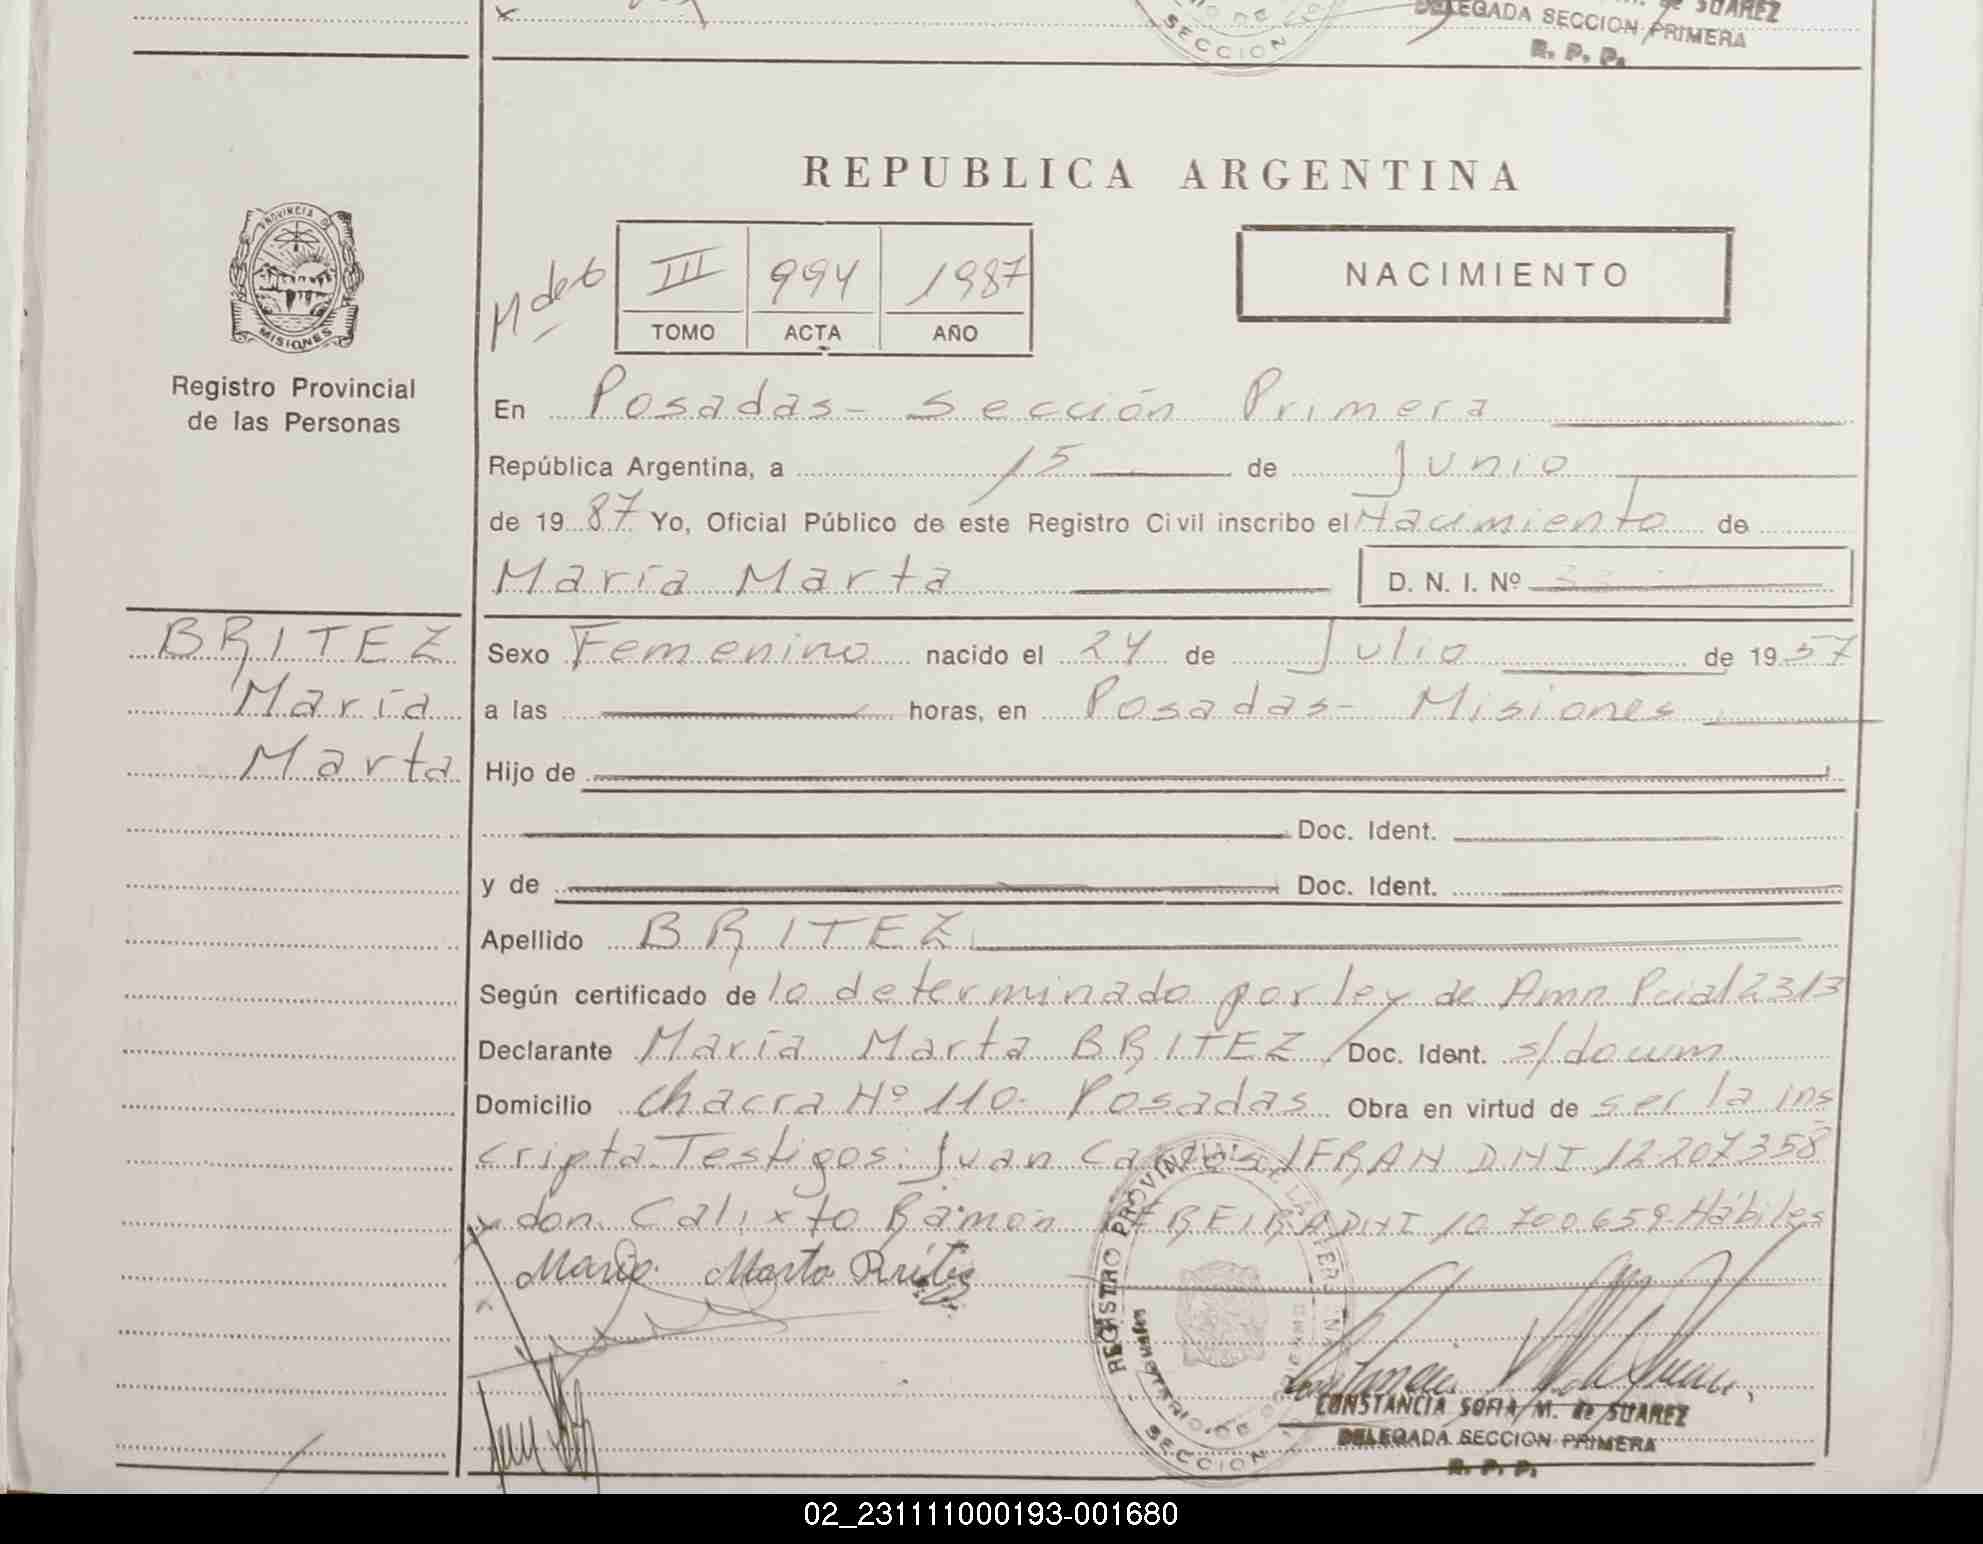 DELEGADA SECCION PRIMERA
R. P. P.
REPUBLICA ARGENTINA
III 994 1987
TOMO ACTA AÑO
NACIMIENTO
PROVINCIA DE
MISIONES
Registro Provincial
de las Personas
En Posadas - Sección Primera
República Argentina, a 15 de Junio
de 1987 Yo, Oficial Público de este Registro Civil inscribo el Nacimiento de
María Marta D. N. I. Nº
BRITEZ
María
Marta
Sexo Femenino nacido el 24 de Julio de 1957
a las horas, en Posadas - Misiones
Hijo de
Doc. Ident.
y de Doc. Ident.
Apellido BRITEZ
Según certificado de lo determinado por ley de Amn Pcial 2313
Declarante María Marta BRITEZ Doc. Ident. s/docum
Domicilio Chacra Nº 110. Posadas Obra en virtud de ser la ins
cripta. Testigos: Juan Carlos IFRAN DNI 12207358
y don Calixto Ramón DNI 10.700.659. Hábiles
Maria Marta Britez
REGISTRO PROVINCIAL DE LAS PERSONAS
SECCION
CONSTANCIA SOFIA M. de SUAREZ
DELEGADA SECCION PRIMERA
R. P. P.
02_231111000193-001680